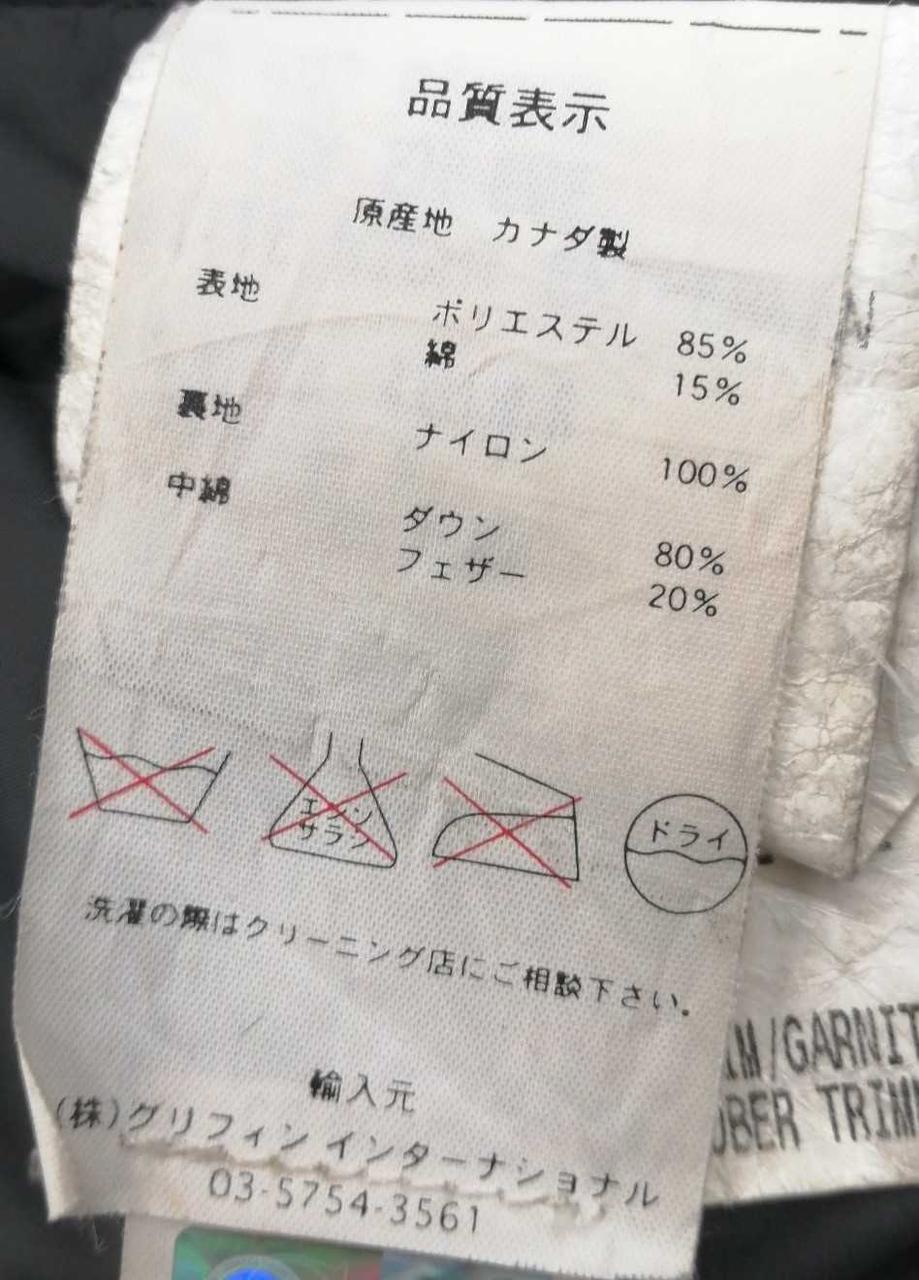 品質表示
原産地 カナダ製
表地
ポリエステル 85%
綿 15%
裏地
ナイロン 100%
中綿
ダウン 80%
フェザー 20%
エンソ
サラシ
ドライ
洗濯の際はクリーニング店にご相談下さい.
輸入元
(株)グリフィン インターナショナル
03-5754-3561
IM/GARNIT
OBER TRIM